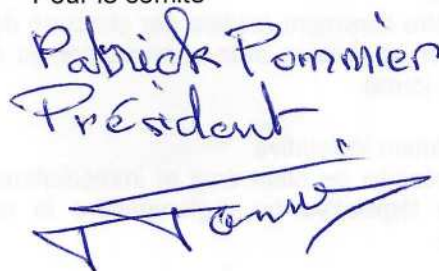 Pour le comité
Patrick Pommier
Président